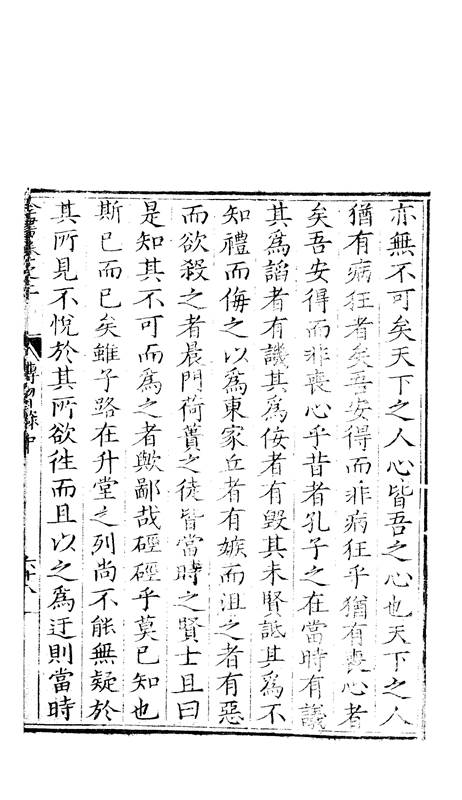 亦無不可矣天下之人心皆吾之心也天下之人
猶有病狂者矣吾安得而非病狂乎猶有喪心者
矣吾安得而非喪心乎昔者孔子之在當時有議
其爲謟者有譏其爲佞者有毀其未賢詆其爲不
知禮而侮之以爲東家丘者有嫉而沮之者有惡
而欲殺之者晨門荷蕢之徒皆當時之賢士且曰
是知其不可而爲之者歟鄙哉硜硜乎莫已知也
斯已而已矣雖子路在升堂之列尚不能無疑於
其所見不悅於其所欲徃而且以之爲迂則當時
傳習錄中
六十八